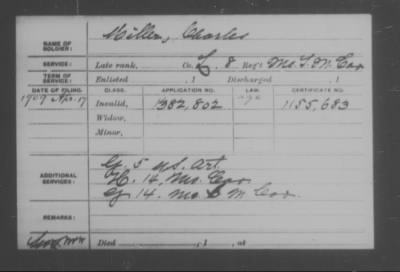 NAME OF SOLDIER: Miller, Charles
SERVICE: Late rank, Co. L, 8 Reg't Mo. S. M. Cav
TERM OF SERVICE: Enlisted , 1 Discharged , 1
DATE OF FILING. CLASS. APPLICATION NO. LAW. CERTIFICATE NO.
1907 Apr. 17 Invalid, 1382,802 age 1155,683
Widow,
Minor,
G. 5 US. Art.
ADDITIONAL SERVICES: H. 14, Mo. Cav.
G 14. Mo S M Cav.
REMARKS:
Died , 1 , at